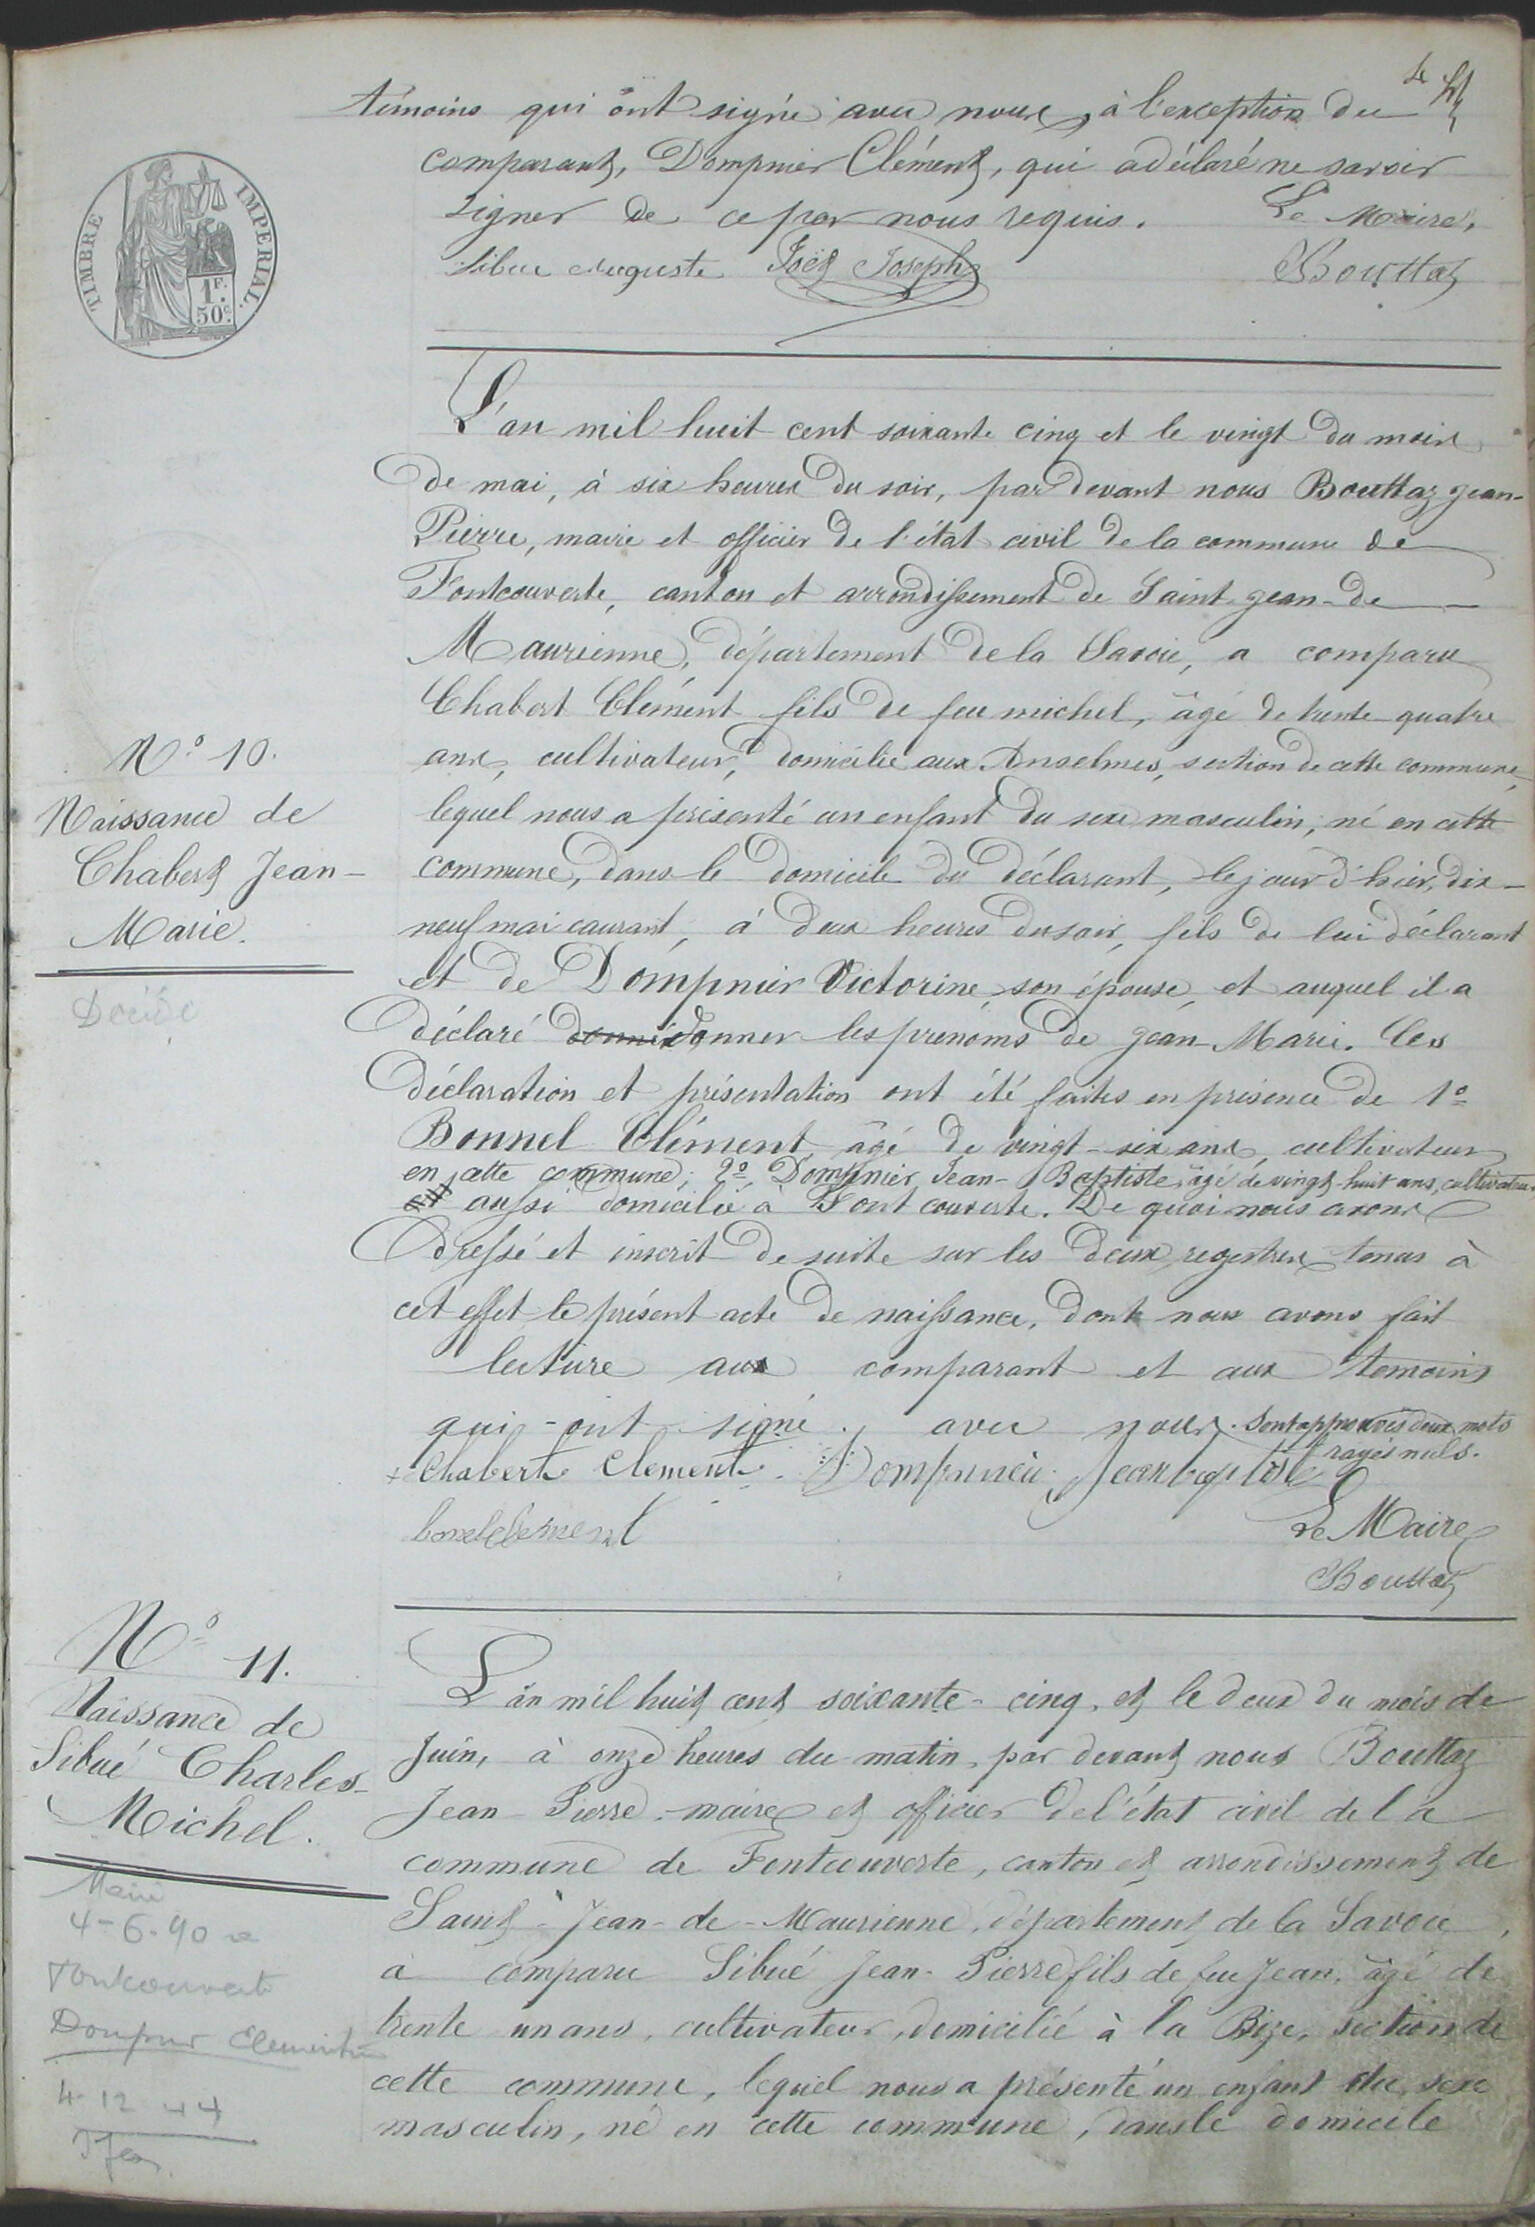 témoins qui ont signé avec nous, à l'exception du
comparant, Dompnier Clément, qui a déclaré ne savoir
signer de ce par nous requis. Le Maire,
Sibué Auguste Joët Joseph Bouttaz
TIMBRE IMPERIAL.
1F.
50c.
L'an mil huit cent soixante cinq et le vingt du mois
de mai, à six heures du soir, par devant nous Bouttaz jean-
Pierre, maire et officier de l'état civil de la commune de
Fontcouverte, canton et arrondissement de Saint-jean-de-
Maurienne, département de la Savoie, a comparu
Chabert Clément fils de feu michel, âgé de trente quatre
ans, cultivateur, domicilié aux Anselmes, section de cette commune,
lequel nous a présenté un enfant du sexe masculin, né en cette
commune, dans le domicile du déclarant, le jour d'hier, dix-
neuf mai courant, à deux heures du soir, fils de lui déclarant
et de Dompnier Victorine son épouse, et auquel il a
déclaré donné donner les prénoms de jean-Marie. Ces
déclaration et présentation ont été faites en présence de 1o
Bonnel Clément âgé de vingt-six ans, cultivateur
en cette commune; 2o Dompnier Jean-Baptiste, âgé de vingt-huit ans, cultivateur
aussi domicilié à Fontcouverte. De quoi nous avons
dressé et inscrit de suite sur les deux registres tenus à
cet effet le présent acte de naissance, dont nous avons fait
lecture aux comparant et aux temoins
qui-ont signé avec nous. Sont approuvés deux mots
rayés nuls.
Chabert Clement Dompnier Jean baptiste
bonel clement Le Maire
Bouttaz
No 10.
Naissance de
Chabert Jean-
Marie.
Décédé
No 11.
Naissance de
Sibué Charles-
Michel.
4-6-90
Fontcouverte
4-12 44
L'an mil huit cent soixante-cinq, et le deux du mois de
Juin, à onze heures du matin, par devant nous Bouttaz
Jean-Pierre, maire et officier de l'état civil de la
commune de Fontcouverte, canton et arrondissement de
Saint-Jean-de-Maurienne, département de la Savoie,
a comparu Sibué Jean-Pierre fils de feu Jean, âgé de
trente un ans, cultivateur, domicilié à la Bize, section de
cette commune, lequel nous a présenté un enfant du sexe
masculin, né en cette commune, dans le domicile